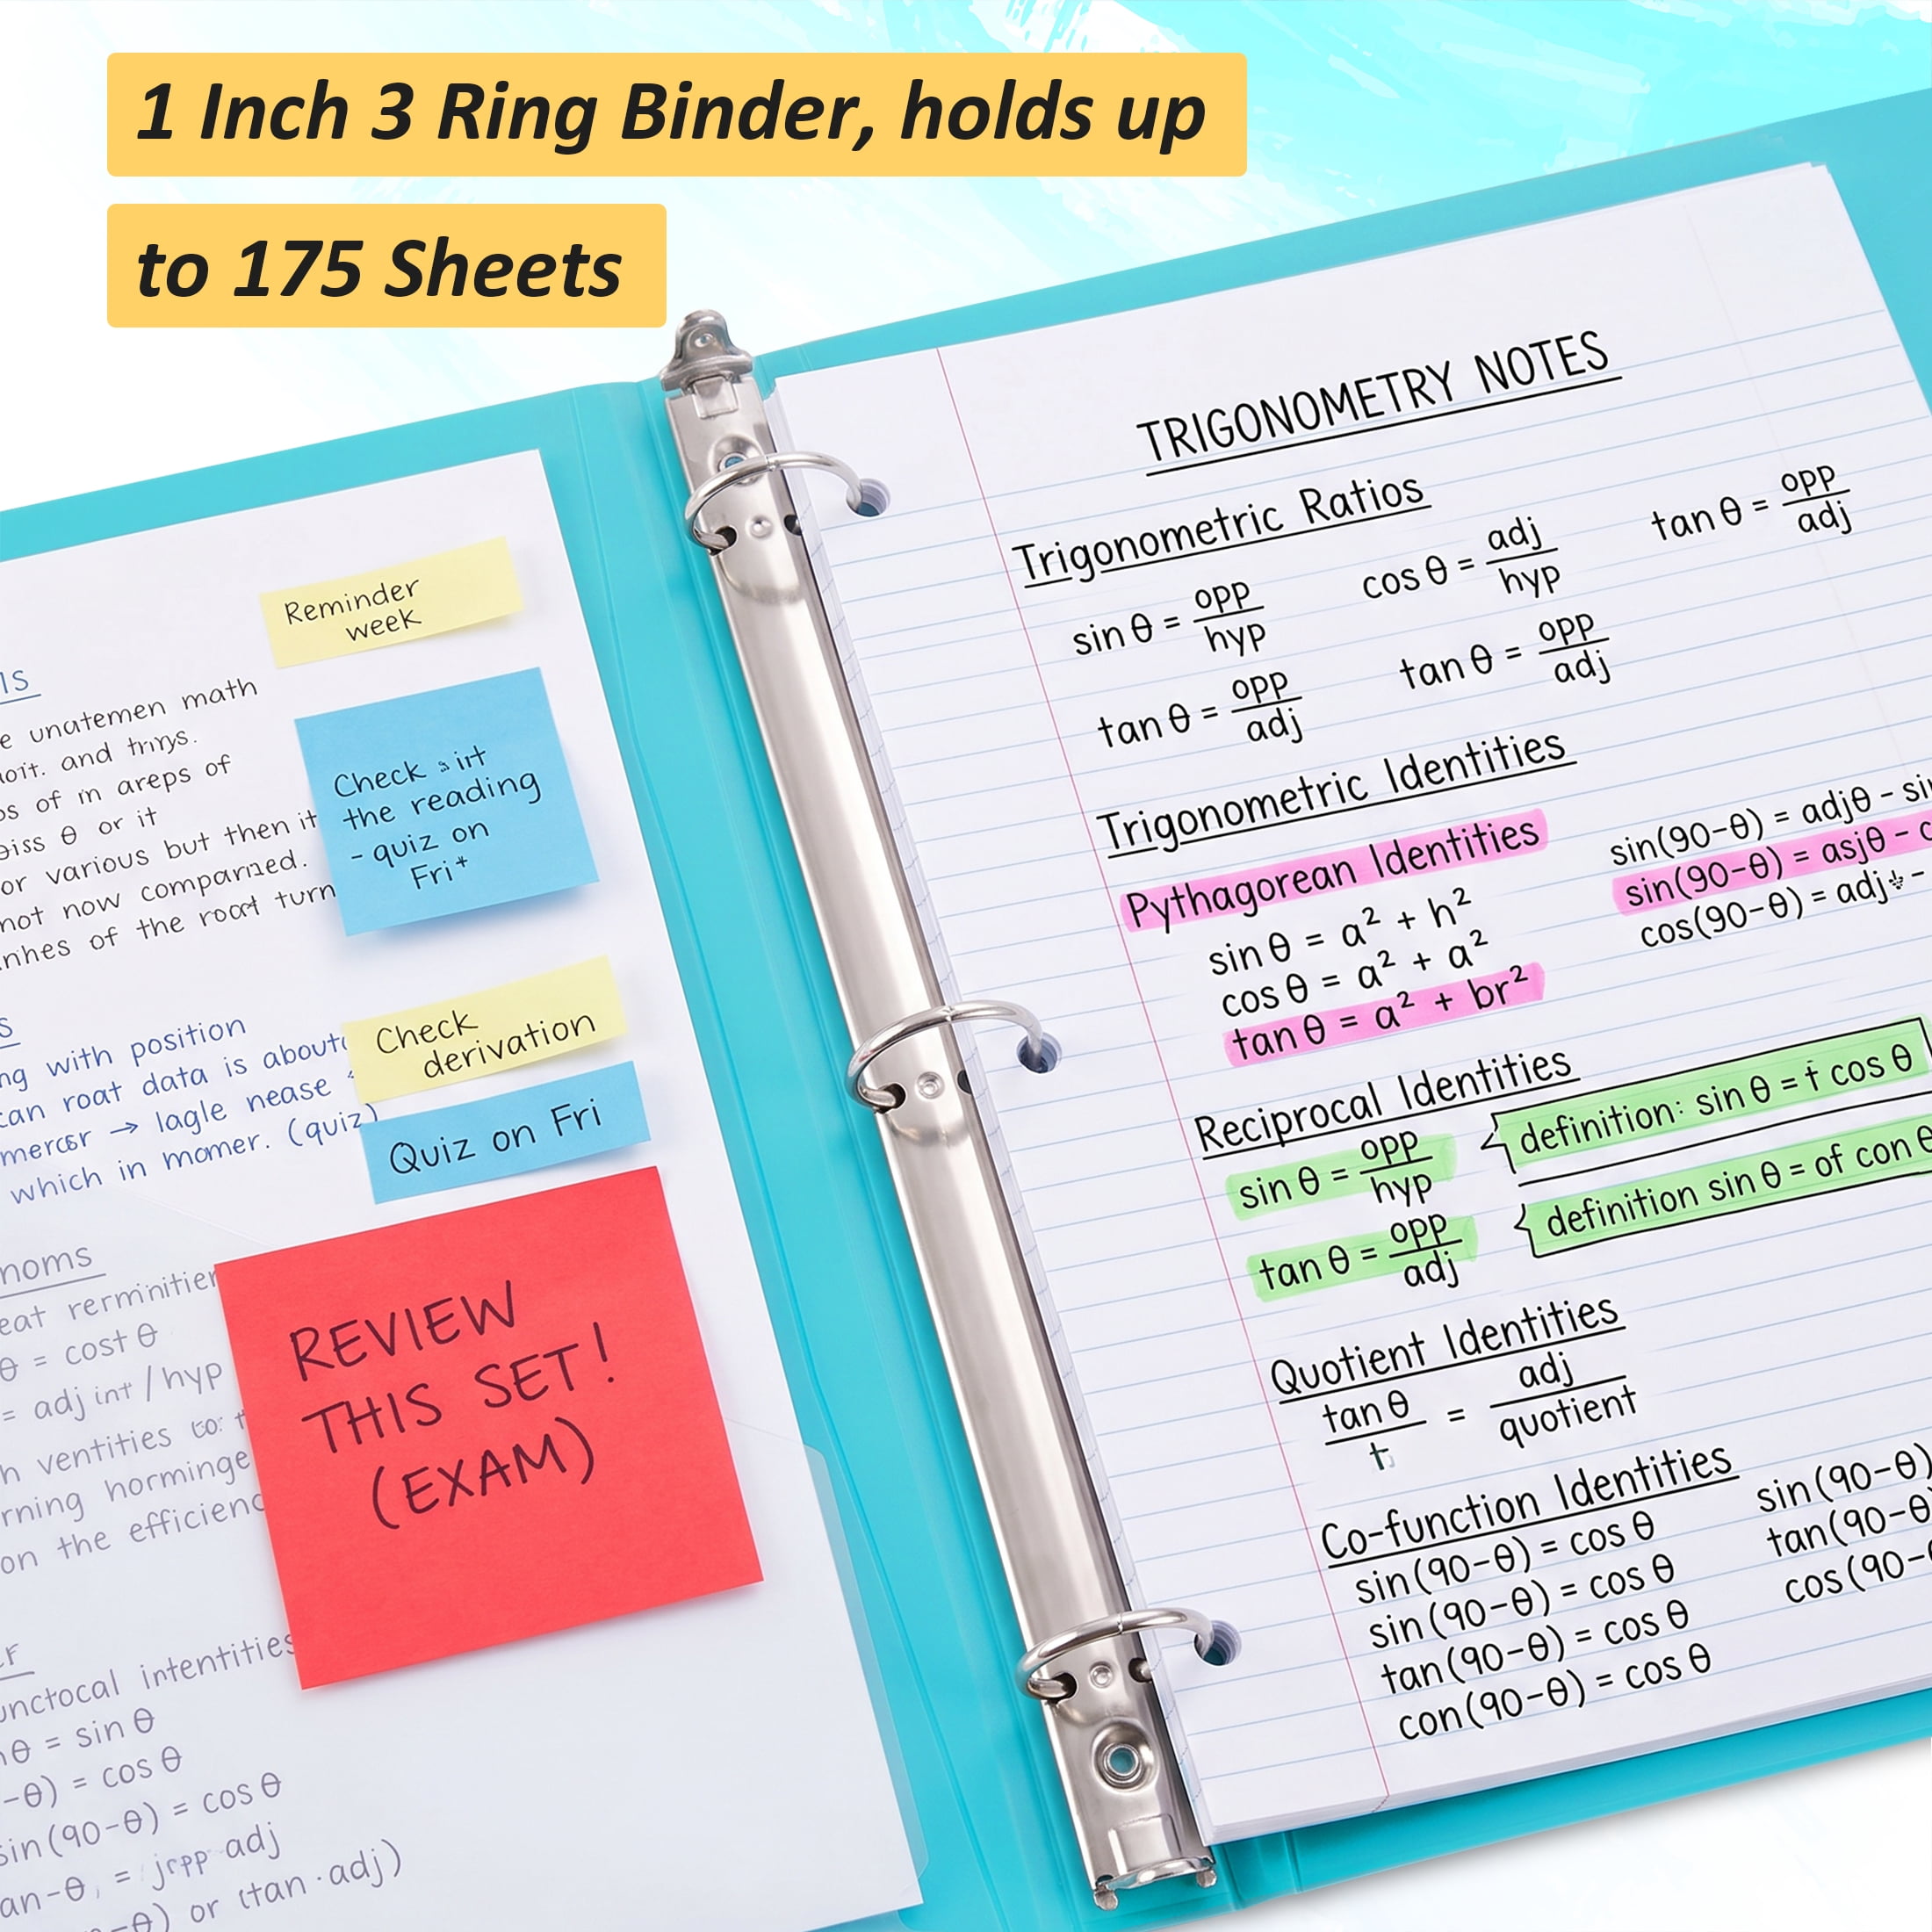 1 Inch 3 Ring Binder, holds up
to 175 Sheets
Reminder
week
ls
e unatemen math
oit. and trirys.
os of in areps of
eiss θ or it
or various but then it
not now comparized.
nhes of the roat turn
Check irt
the reading
- quiz on
Fri+
s
ng with position
can roat data is about
mercsr → lagle nease
which in momer. (quiz)
Check
derivation
Quiz on Fri
noms
eat rerminitier
θ = cost θ
= adj int / hyp
h ventities to:
rning horminge
on the efficienc
REVIEW
THIS SET!
(EXAM)
er
unctocal intentities
θ = sin θ
-θ) = cos θ
sin(90-θ) = cos θ
an-θ, = jrpp adj
-θ) or (tan · adj)
TRIGONOMETRY NOTES
Trigonometric Ratios
sin θ = opp/hyp cos θ = adj/hyp tan θ = opp/adj
tan θ = opp/adj tan θ = opp/adj
Trigonometric Identities
Pythagorean Identities
sin θ = a² + h²
cos θ = a² + a²
tan θ = a² + br²
sin(90-θ) = adjθ - sin
sin(90-θ) = asjθ - c
cos(90-θ) = adj -
Reciprocal Identities
sin θ = opp/hyp
tan θ = opp/adj
definition: sin θ = t cos θ
definition sin θ = of con θ
Quotient Identities
tan θ/t = adj/quotient
Co-function Identities
sin(90-θ) = cos θ
sin(90-θ) = cos θ
tan(90-θ) = cos θ
con(90-θ) = cos θ
sin(90-θ)
tan(90-θ
cos(90-